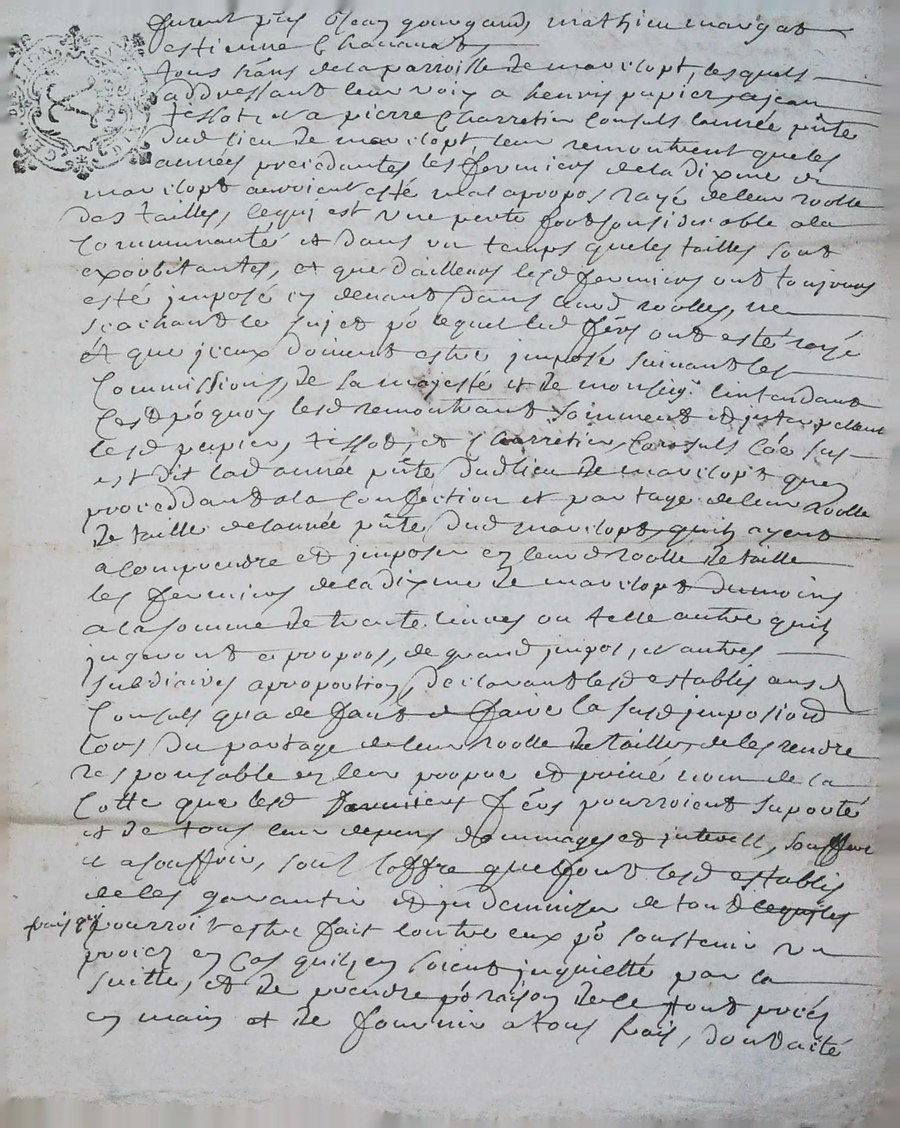 furent pñs Jean gourgand, mathieu margat
estienne Chavanat
tous hañs de la parroisse de marclopt, lesquels
addressant leur voix a henry papier, a jean
tissot, et a pierre Charretier Consuls lannée pñte
dud lieu de marclopt, leur remontrent que les
années precedantes les fermiers de la dixme de
marclopt auroient esté mal apropos rayé de leur rolle
des tailles, Ce qui est une perte fort Considerable a la
Communauté et dans un temps que les tailles sont
exorbitantes, et que dailleurs lesd fermiers ont toujours
esté imposé cy devant dans leurd rolles, ne
scachant le sujet po lequel lesd fers ont esté rayé
Et que jceux doivent estre imposé suivant les
Commissions de sa majesté et de monseigr lintendant
Cest po quoy lesd remontrant somment et interpellent
lesd papier, tissot, et Charretier, Consuls Coe sus
est dit lad année pñte dud lieu de marclopt quen
proceddant a la Confection et partage de leur Rolle
de taille de lannée pñte dud marclopt quils ayent
a Comprendre et imposer en leurd rolle de taille
les fermiers de la dixme de marclopt dumoins
a la somme de trente livres ou telle autre quilz
jugeront a propos, de grand impos, et autres
subsidies a proportion, declarant lesd establis ausd
Consuls qua de faut de faire la susd imposiond
lors du partage de leur rolle de tailles, de les rendre
responsable en leur propre et privé nom de la
Cotte que lesd fers pourroient suporté
et de tous leur depens dommages et interest, souffert
et a souffrir, sous loffre que font lesd establis
de les garantir et indemniser de tout
frais quy pourroit estre fait contre eux po soustenir un
procez en Cas quilz en soient inquietté par la
suitte, et de prendre po raison de ce tout procés
en main et de fournir a tous frais, dont acté